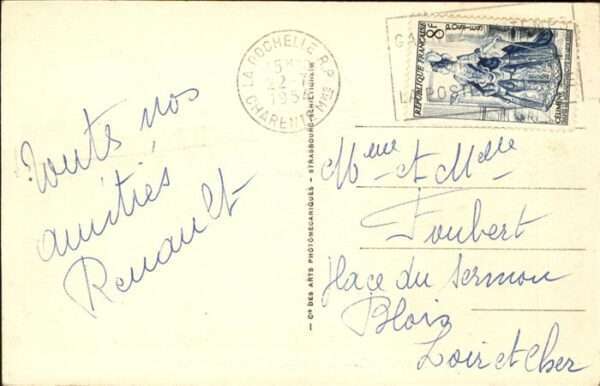 Toutes nos
amitiés
Renault
LA ROCHELLE R.P.
15H
22-7
1954
CHARENTE-Mme
8F
POSTES
REPUBLIQUE FRANÇAISE
LA POSTE
— Cie DES ARTS PHOTOMÉCANIQUES - STRASBOURG-SCHILTIGHEIM —
Mme et Melle
Foubert
Place du Sermon
Blois
Loir et Cher